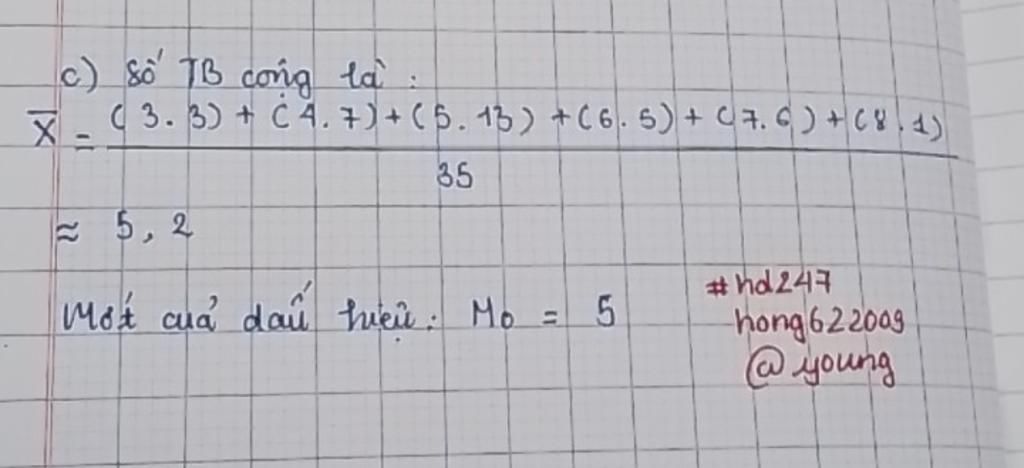 c) Số TB cộng là :
X̄ = (3.3) + (4.7) + (5.13) + (6.5) + (7.6) + (8.1)
35
≈ 5,2
Mốt của dấu hiệu: M0 = 5
#hd247
hong622009
@young